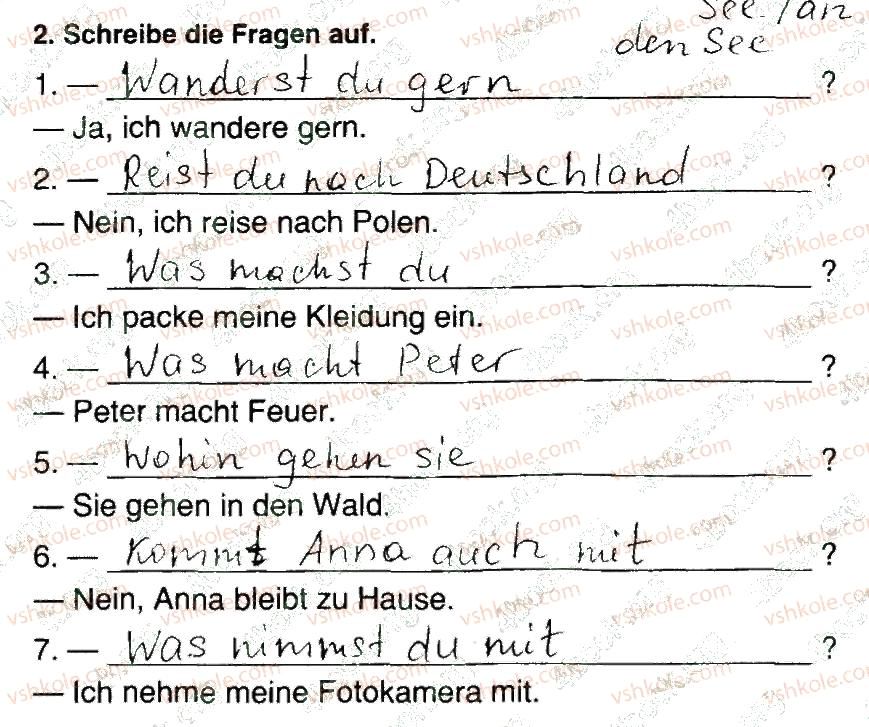 See / an
2. Schreibe die Fragen auf.
den See
1. — Wanderst du gern ?
— Ja, ich wandere gern.
2. — Reist du nach Deutschland ?
— Nein, ich reise nach Polen.
3. — Was machst du ?
— Ich packe meine Kleidung ein.
4. — Was macht Peter ?
— Peter macht Feuer.
5. — Wohin gehen sie ?
— Sie gehen in den Wald.
6. — Kommt Anna auch mit ?
— Nein, Anna bleibt zu Hause.
7. — Was nimmst du mit ?
— Ich nehme meine Fotokamera mit.
vshkole.com